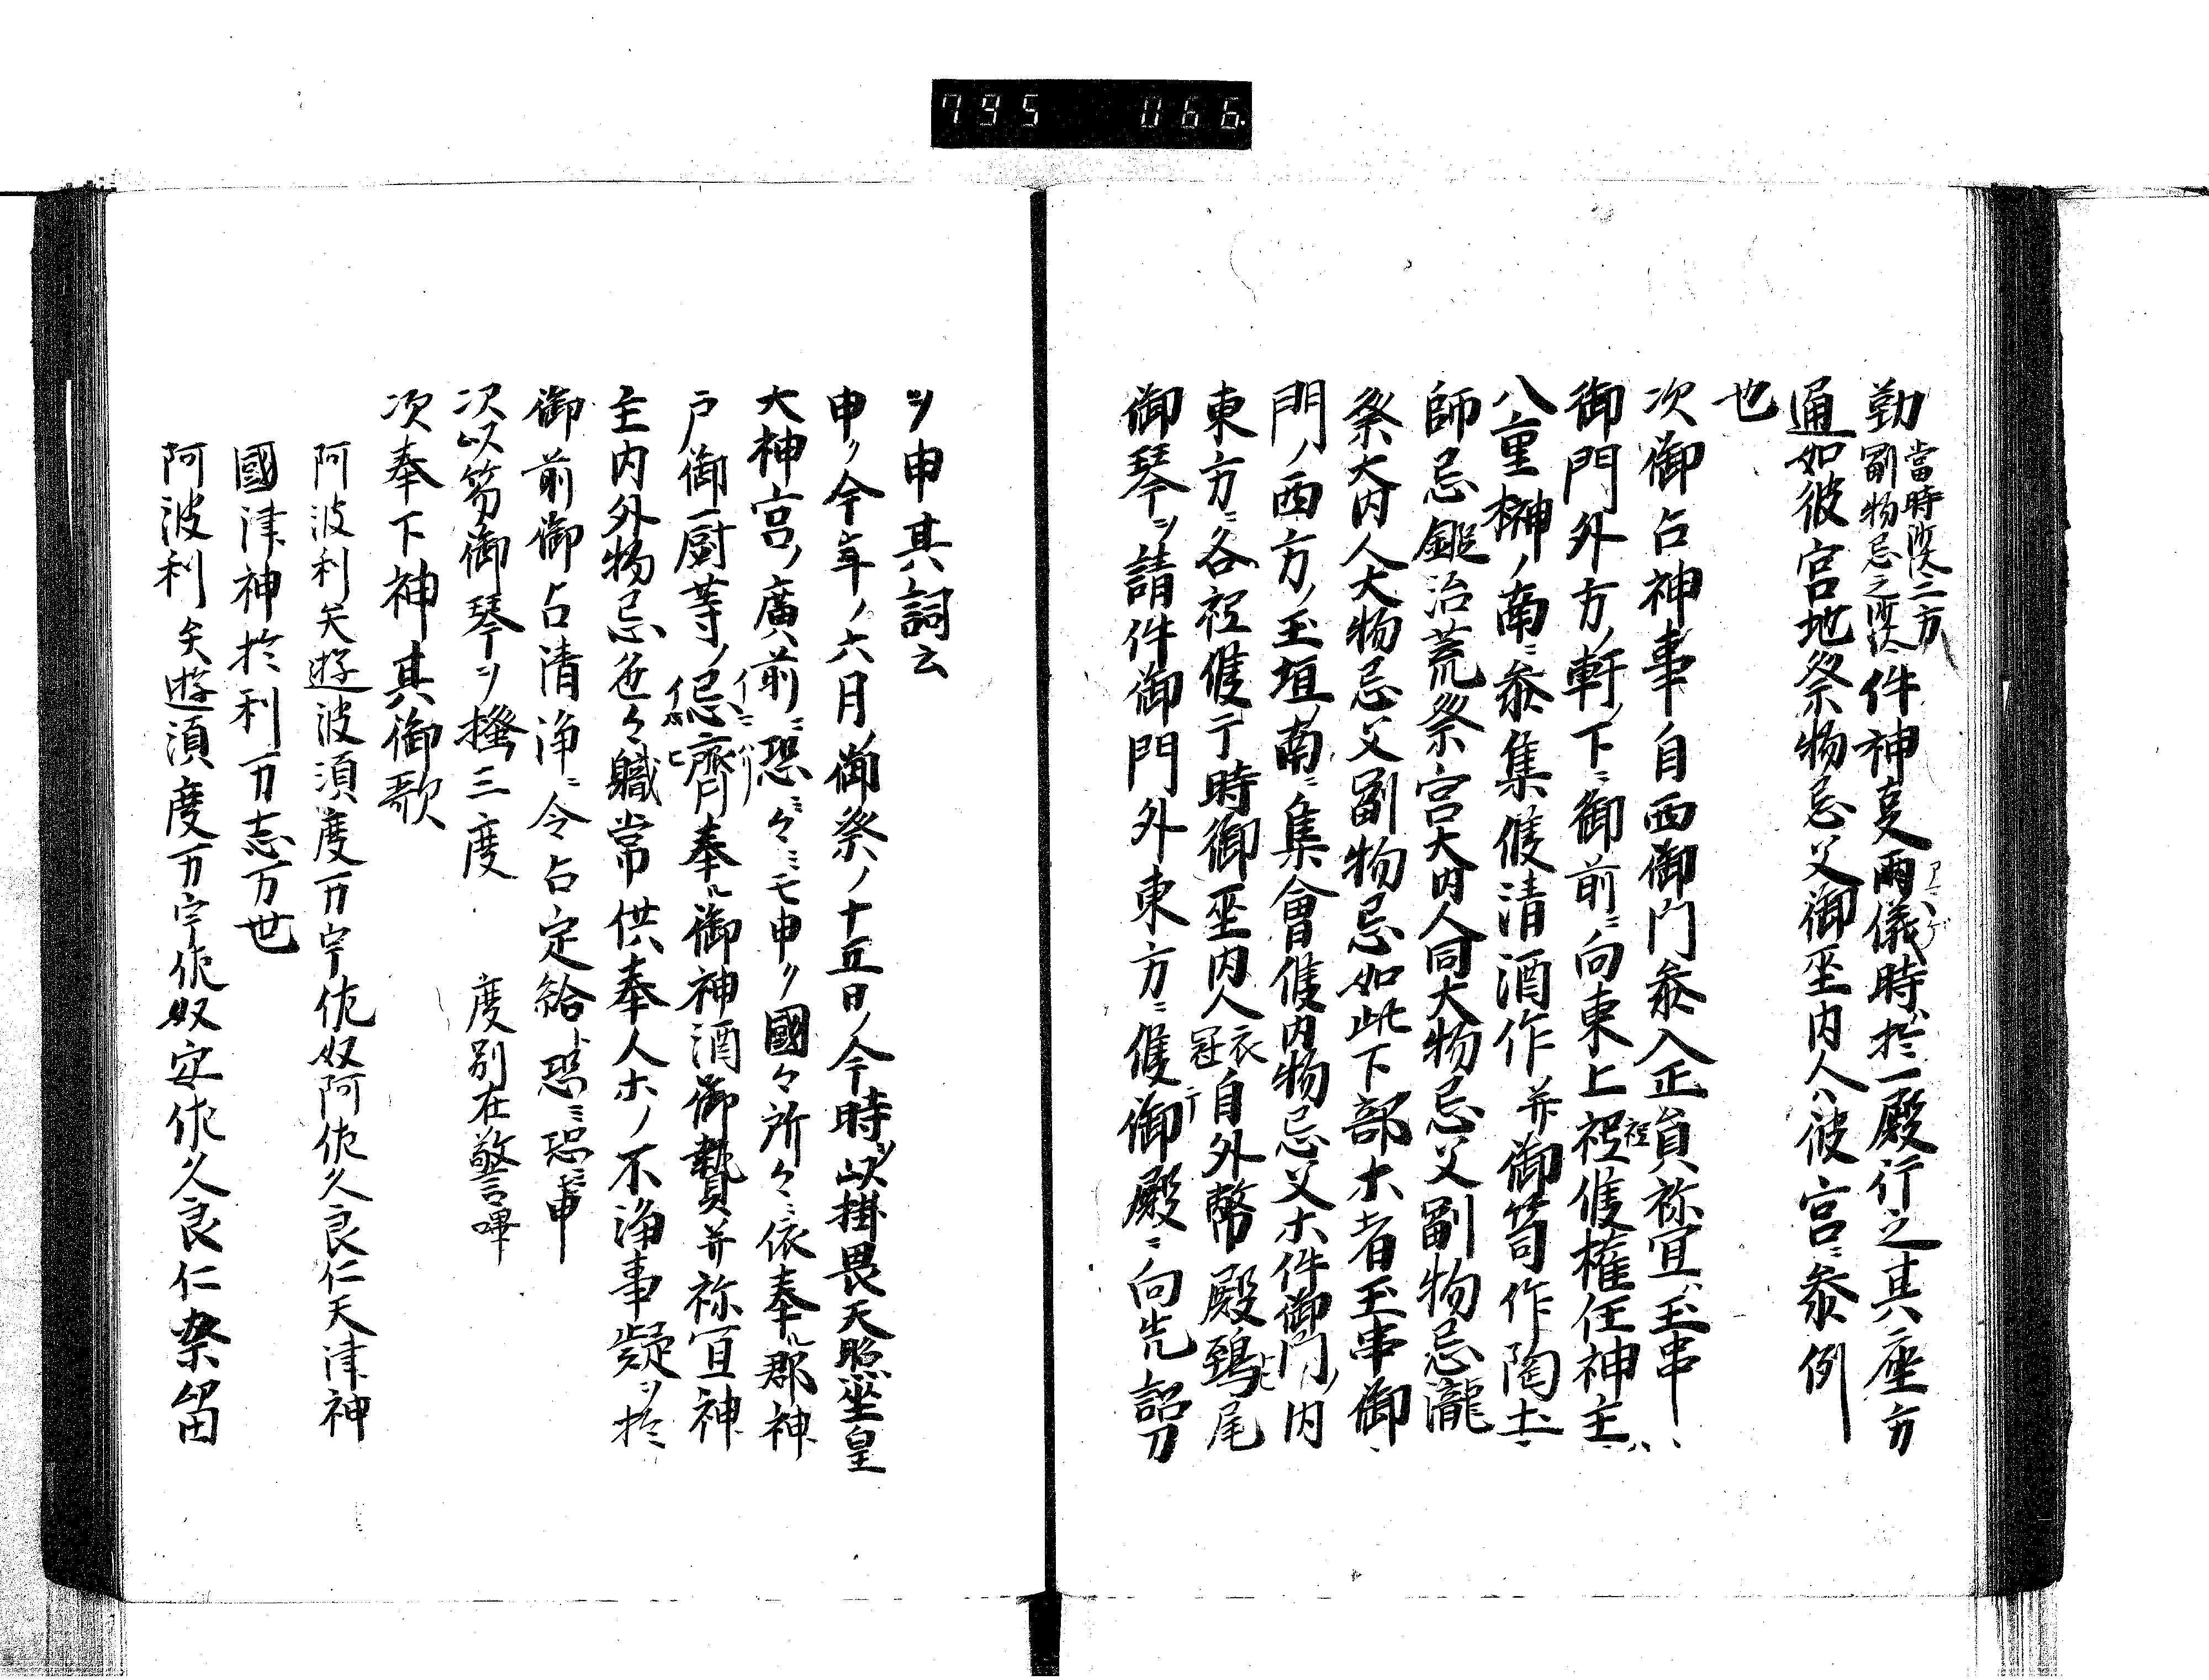 795 066
勤 當時所役二方 副物忌之所役 件神事兩儀時ハ於一殿行之其座方
通如彼宮地祭物忌父御巫内人ハ彼宮ニ參例
也
次御占神事自西御門參入正員祢宜、玉串
御門外方ノ軒ノ下ニ御前ニ向東上祗候權任神主
八重榊ノ南ニ參集候清酒作并御笥作陶土
師忌鍛冶荒祭宮大内人同大物忌父副物忌瀧
祭大内人大物忌父副物忌如此下部木者玉串御
門ノ西方ノ玉垣ノ南ニ集會候内物忌父木件御門ノ内
東方ニ各祗候于時御巫内人衣冠自外幣殿鵄尾
御琴ヲ請件御門外東方ニ候御殿ニ向先詔刀
ヲ申其詞云
申ク今年ノ六月ノ御祭ノ十五日ノ今時ヲ以掛畏天照坐皇
大神宮ノ廣前ニ恐ミ々ミモ申ク國々所々ニ依奉ル郡神
戸御厨等ノ忌齊奉ル御神酒御贄并祢宜神
主内外物忌色々職常供奉人木ノ不淨事疑ヲ於
御前御占清淨ニ令占定給ト恐ミ恐ミ申
次以笏御琴ヲ搔三度 度別在警嗶
次奉下神其御歌
阿波利矢遊波須度万宇佐奴阿佐久良仁天津神
國津神於利万志万世
阿波利矢遊須度万宇佐奴安佐久良仁奈留